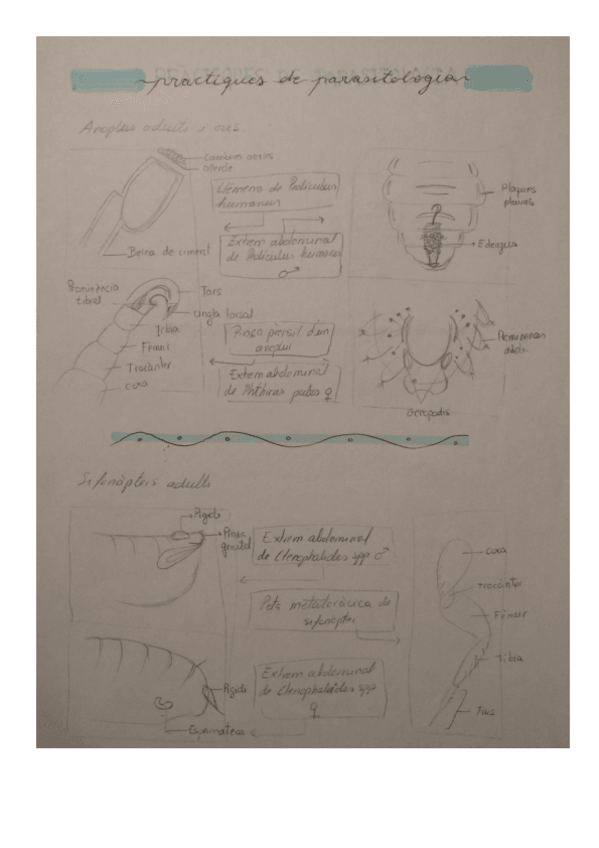 practiques de parasitologia
Anoplurs adults i ous.
Cambres aèries
Opercle
Beina de ciment
de Pediculus
humanus
Extrem abdominal
de Pediculus humanus
♂
Plaques
pleurals
Edeagus
Prominència
tibial
Tars
Ungla tarsal
Tíbia
Fèmur
Trocànter
coxa
Pinça prènsil d'un
anoplur
Extrem abdominal
de Phthirus pubis ♀
Gonopodis
Sifonàpters adults
Pigidi
Pinça
genital
Extrem abdominal
de Ctenophalides spp ♂
Pota metatoràcica de
sifonàpter
Extrem abdominal
de Ctenophalides spp
♀
Pigidi
Espermateca
coxa
Trocànter
Fèmur
Tíbia
Tars